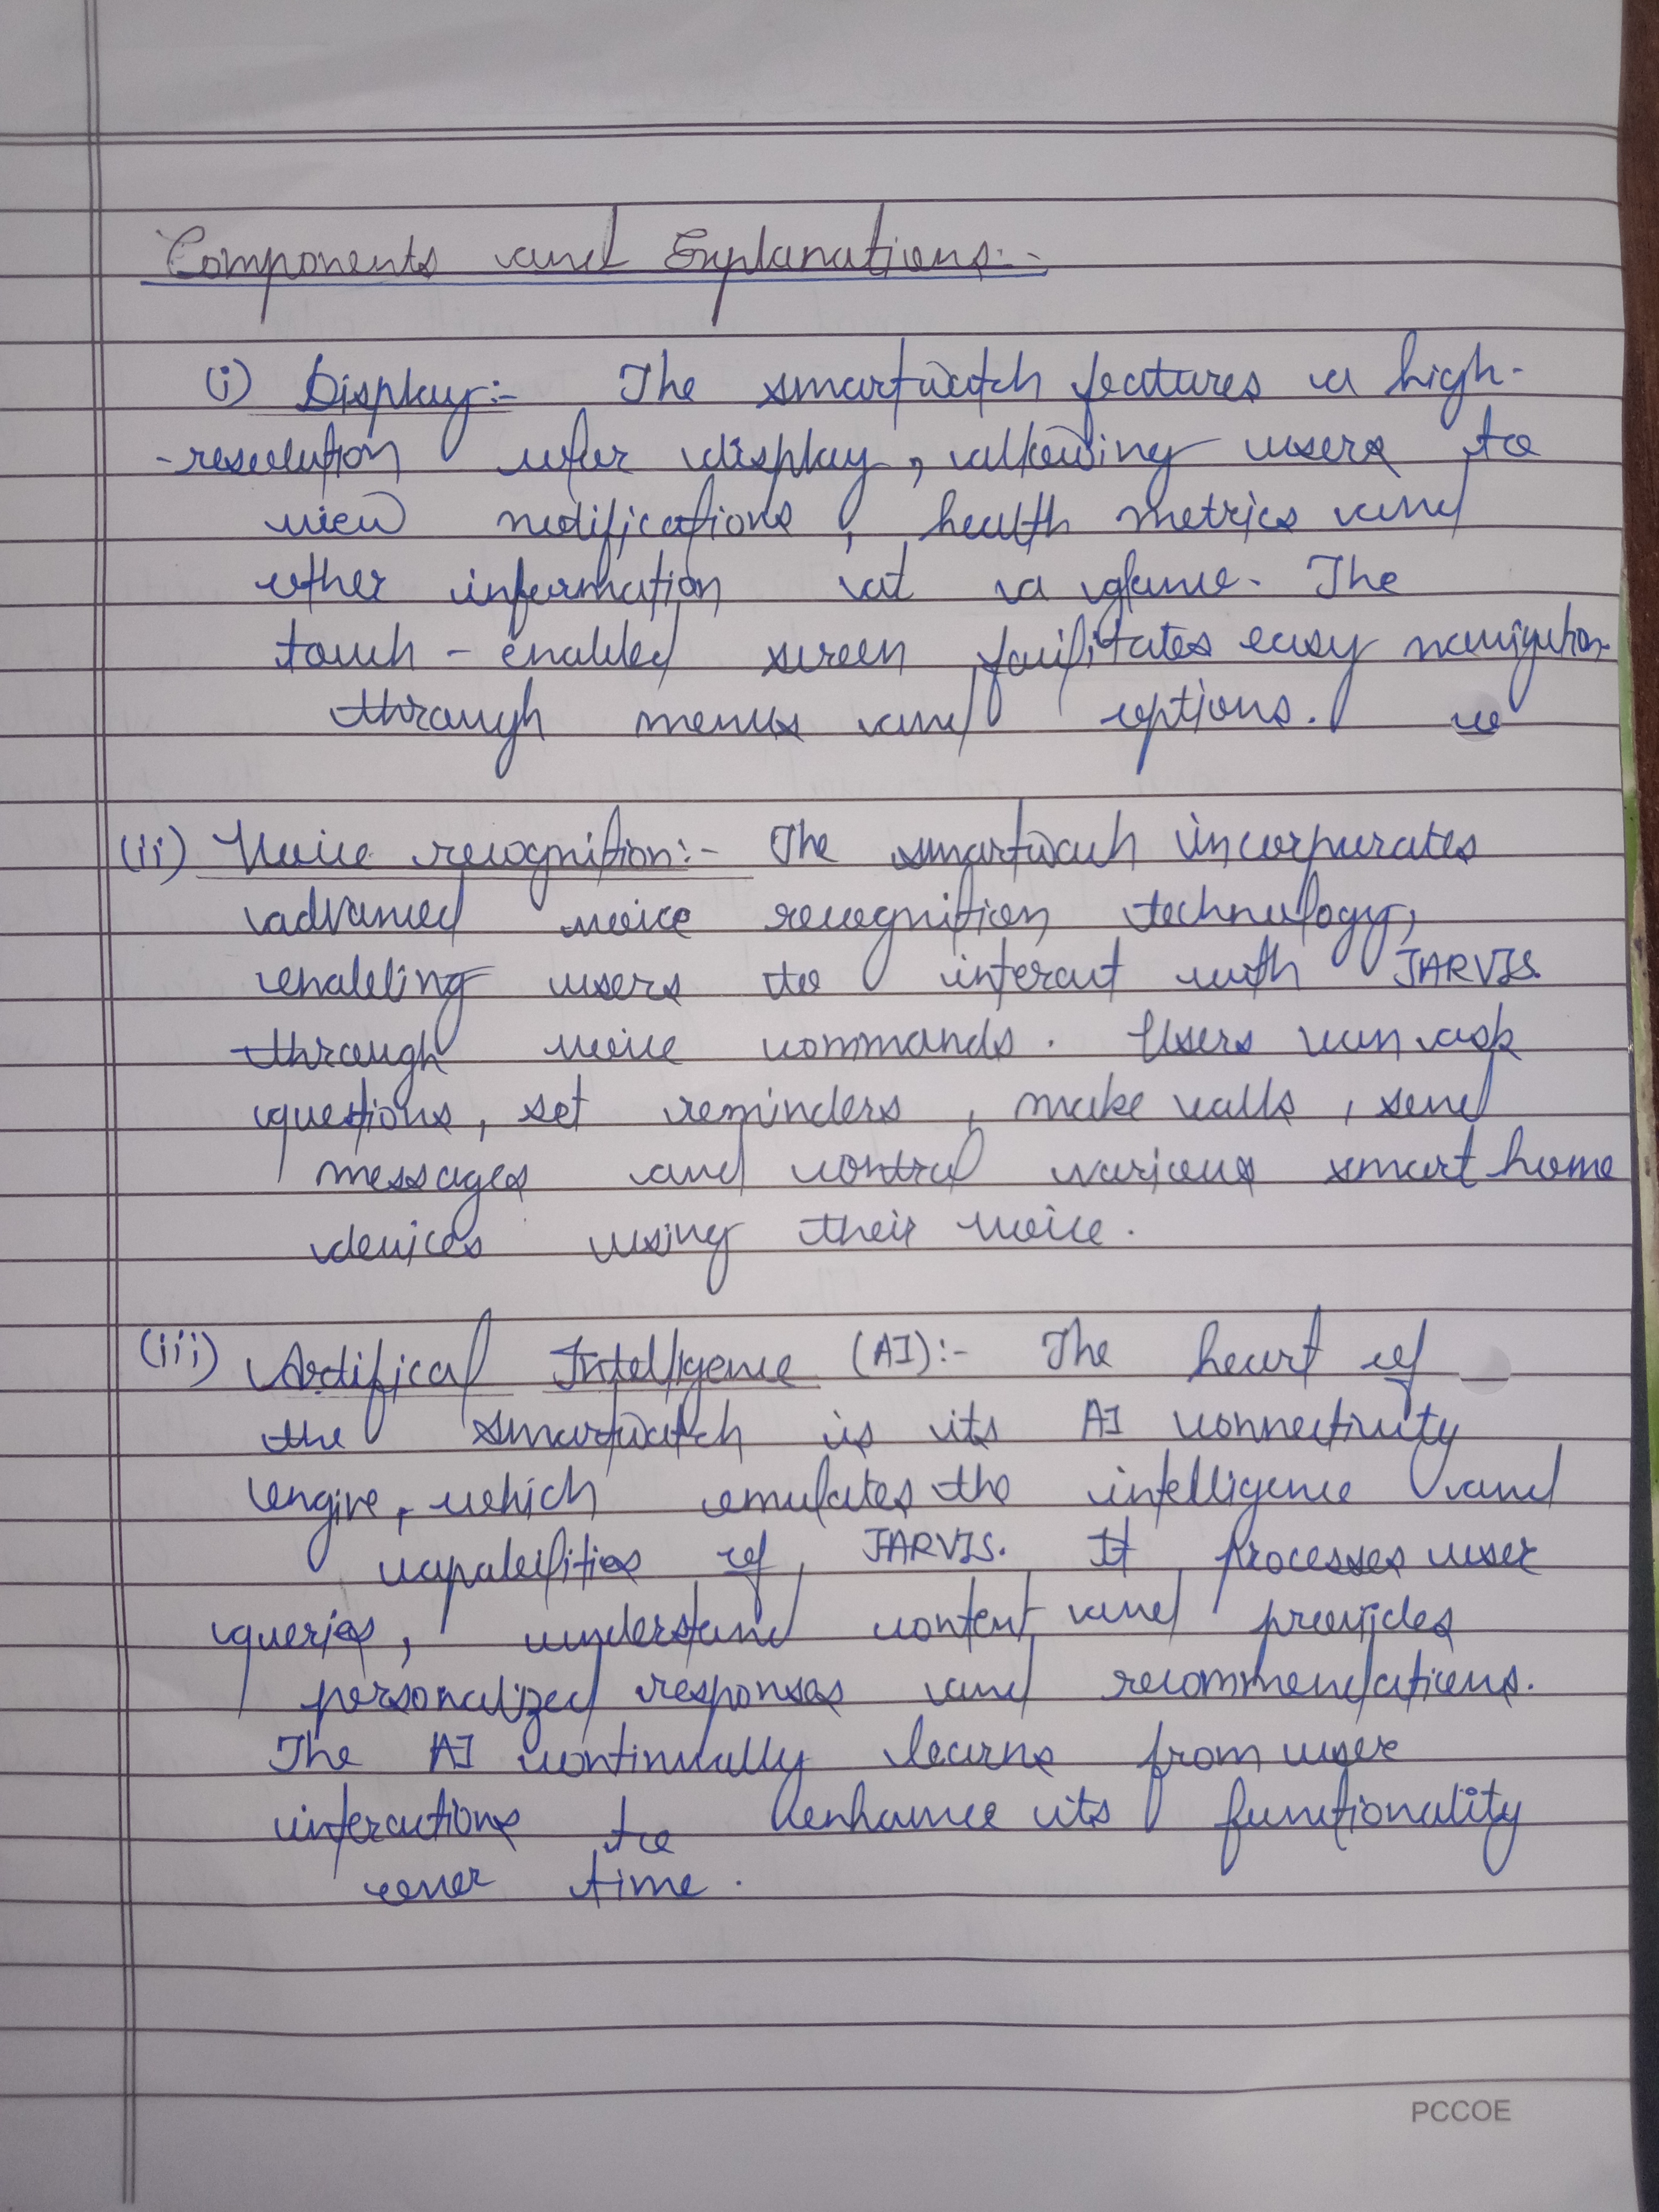 Components and Explanations:-
(i) Display:- The smartwatch features a high-
-resolution display, allowing users to
view notifications, health metrics and
other information at a glance. The
touch-enabled screen facilitates easy navigation
through menus and options.
(ii) Voice recognition:- The smartwach incorporates
advanced voice recognition technology,
enabling users to interact with JARVIS
through voice commands. Users can ask
questions, set reminders, make calls, send
messages and control various smart home
devices using their voice.
(iii) Artifical Intelligence (AI):- The heart of
the smartwatch is its AI connectivity
engine, which emulates the intelligence and
capabilities of JARVIS. It processes user
queries, understand content and provides
personalized responses and recommendations.
The AI continually learns from user
interactions to enhance its functionality
over time.
PCCOE